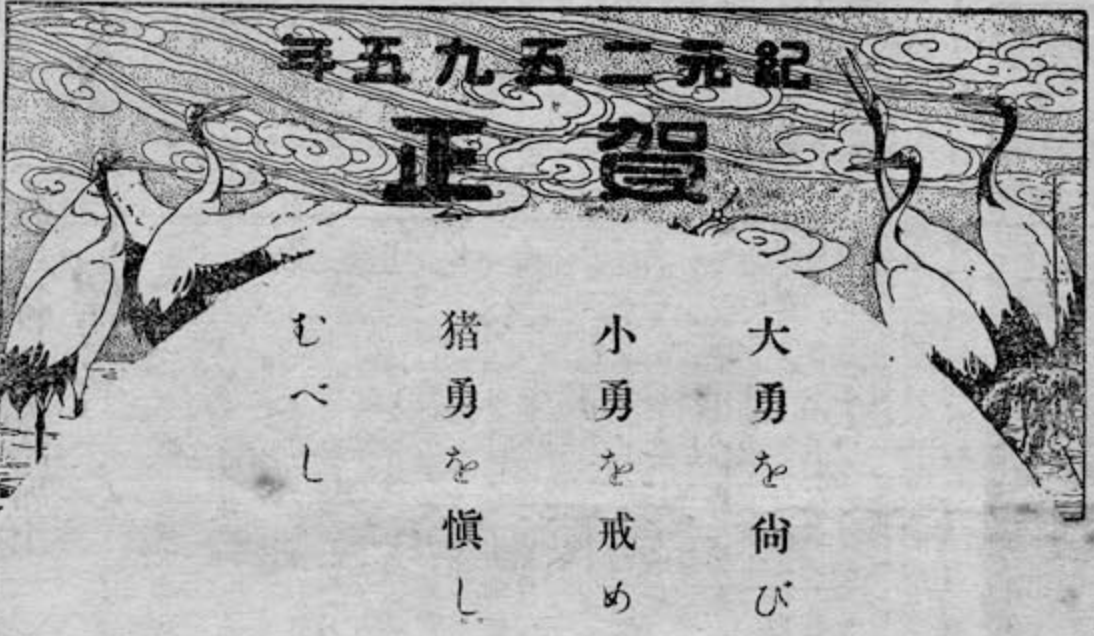 紀元二五九五年
賀正
大勇を尙び
小勇を戒め
猪勇を愼し
むべし